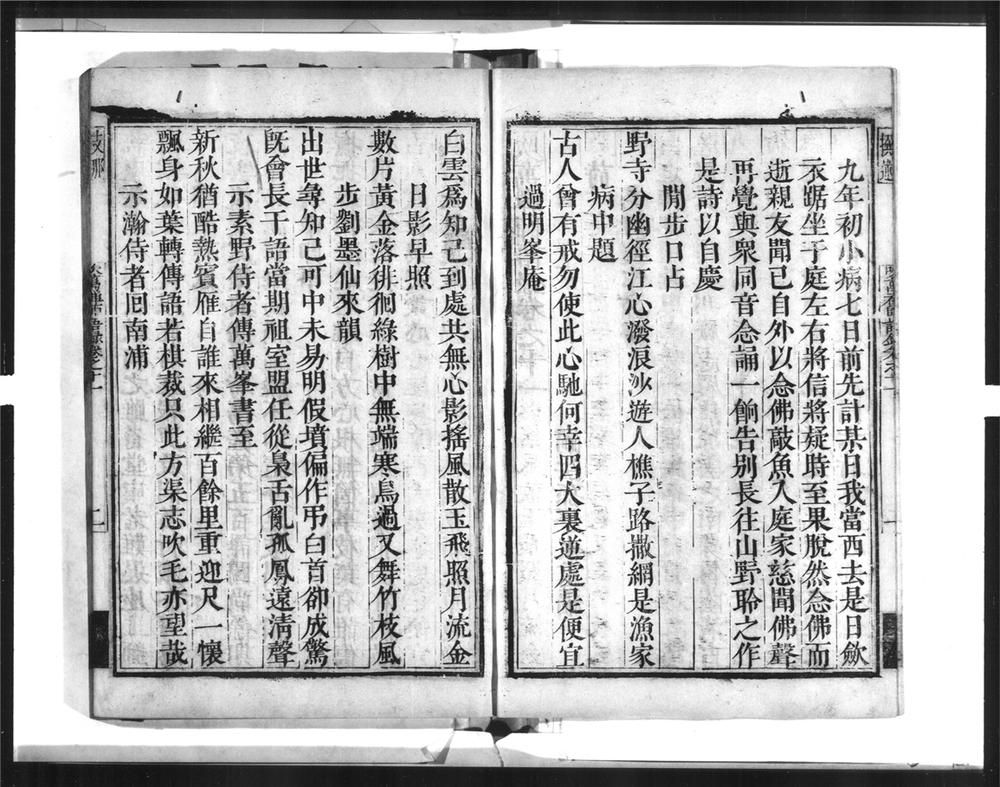 九年初小病七日前先計某日我當西去是日歛
衣踞坐于庭左右將信將疑時至果脫然念佛而
逝親友聞已自外以念佛敲魚入庭家慈聞佛聲
再覺與衆同音念誦一餉告别長往山野聆之作
是詩以自慶
閒步口占
野寺分幽徑江心潑浪沙遊人樵子路撒網是漁家
病中題
古人曾有戒勿使此心馳何幸四大裏逆處是便宜
過明峯庵
白雲爲知己到處共無心影搖風散玉飛照月流金
日影早照
數片黃金落徘徊綠樹中無端寒鳥過又舞竹枝風
步劉墨仙來韻
出世尋知己可中未易明假墳偏作弔白首卻成驚
旣會長干語當期祖室盟任從梟舌亂孤鳳遠淸聲
示素野侍者傳萬峯書至
新秋猶酷熱賓雁自誰來相繼百餘里重迎尺一懷
飄身如葉轉傳語若棋裁只此方渠志吹毛亦望哉
示瀚侍者囘南浦
二